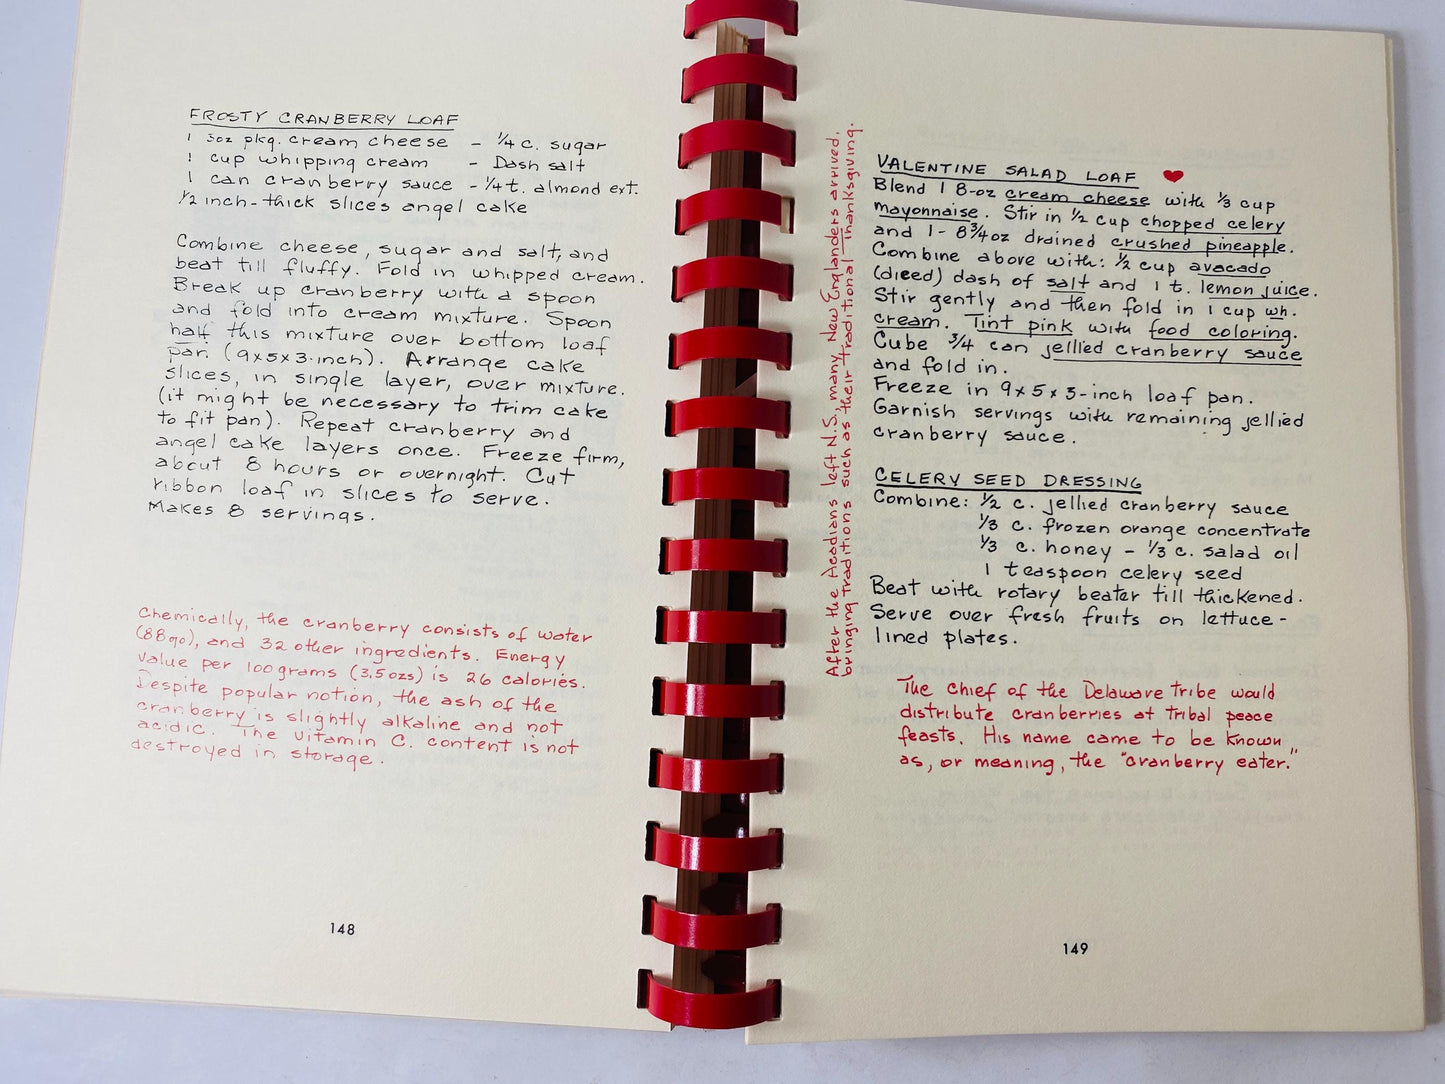 FROSTY CRANBERRY LOAF
1 3oz pkg. cream cheese - ¼ c. sugar
1 cup whipping cream - Dash salt
1 can cranberry sauce - ¼ t. almond ext.
½ inch-thick slices angel cake
Combine cheese, sugar and salt, and
beat till fluffy. Fold in whipped cream.
Break up cranberry with a spoon
and fold into cream mixture. Spoon
half this mixture over bottom loaf
pan (9x5x3-inch). Arrange cake
slices, in single layer, over mixture.
(it might be necessary to trim cake
to fit pan). Repeat cranberry and
angel cake layers once. Freeze firm,
about 8 hours or overnight. Cut
ribbon loaf in slices to serve.
Makes 8 servings.
Chemically, the cranberry consists of water
(88%), and 32 other ingredients. Energy
value per 100 grams (3.5 ozs) is 26 calories.
Despite popular notion, the ash of the
cranberry is slightly alkaline and not
acidic. The vitamin C. content is not
destroyed in storage.
148
After the Acadians left N.S., many New Englanders arrived,
bringing traditions such as their traditional Thanksgiving.
VALENTINE SALAD LOAF ♥
Blend 1 8-oz cream cheese with ⅓ cup
mayonnaise. Stir in ½ cup chopped celery
and 1 - 8¾ oz drained crushed pineapple.
Combine above with: ½ cup avocado
(diced) dash of salt and 1 t. lemon juice.
Stir gently and then fold in 1 cup wh.
cream. Tint pink with food coloring.
Cube ¾ can jellied cranberry sauce
and fold in.
Freeze in 9x5x3-inch loaf pan.
Garnish servings with remaining jellied
cranberry sauce.
CELERY SEED DRESSING
Combine: ½ c. jellied cranberry sauce
⅓ c. frozen orange concentrate
⅓ c. honey - ⅓ c. salad oil
1 teaspoon celery seed
Beat with rotary beater till thickened.
Serve over fresh fruits on lettuce-
lined plates.
The chief of the Delaware tribe would
distribute cranberries at tribal peace
feasts. His name came to be known
as, or meaning, the "cranberry eater."
149